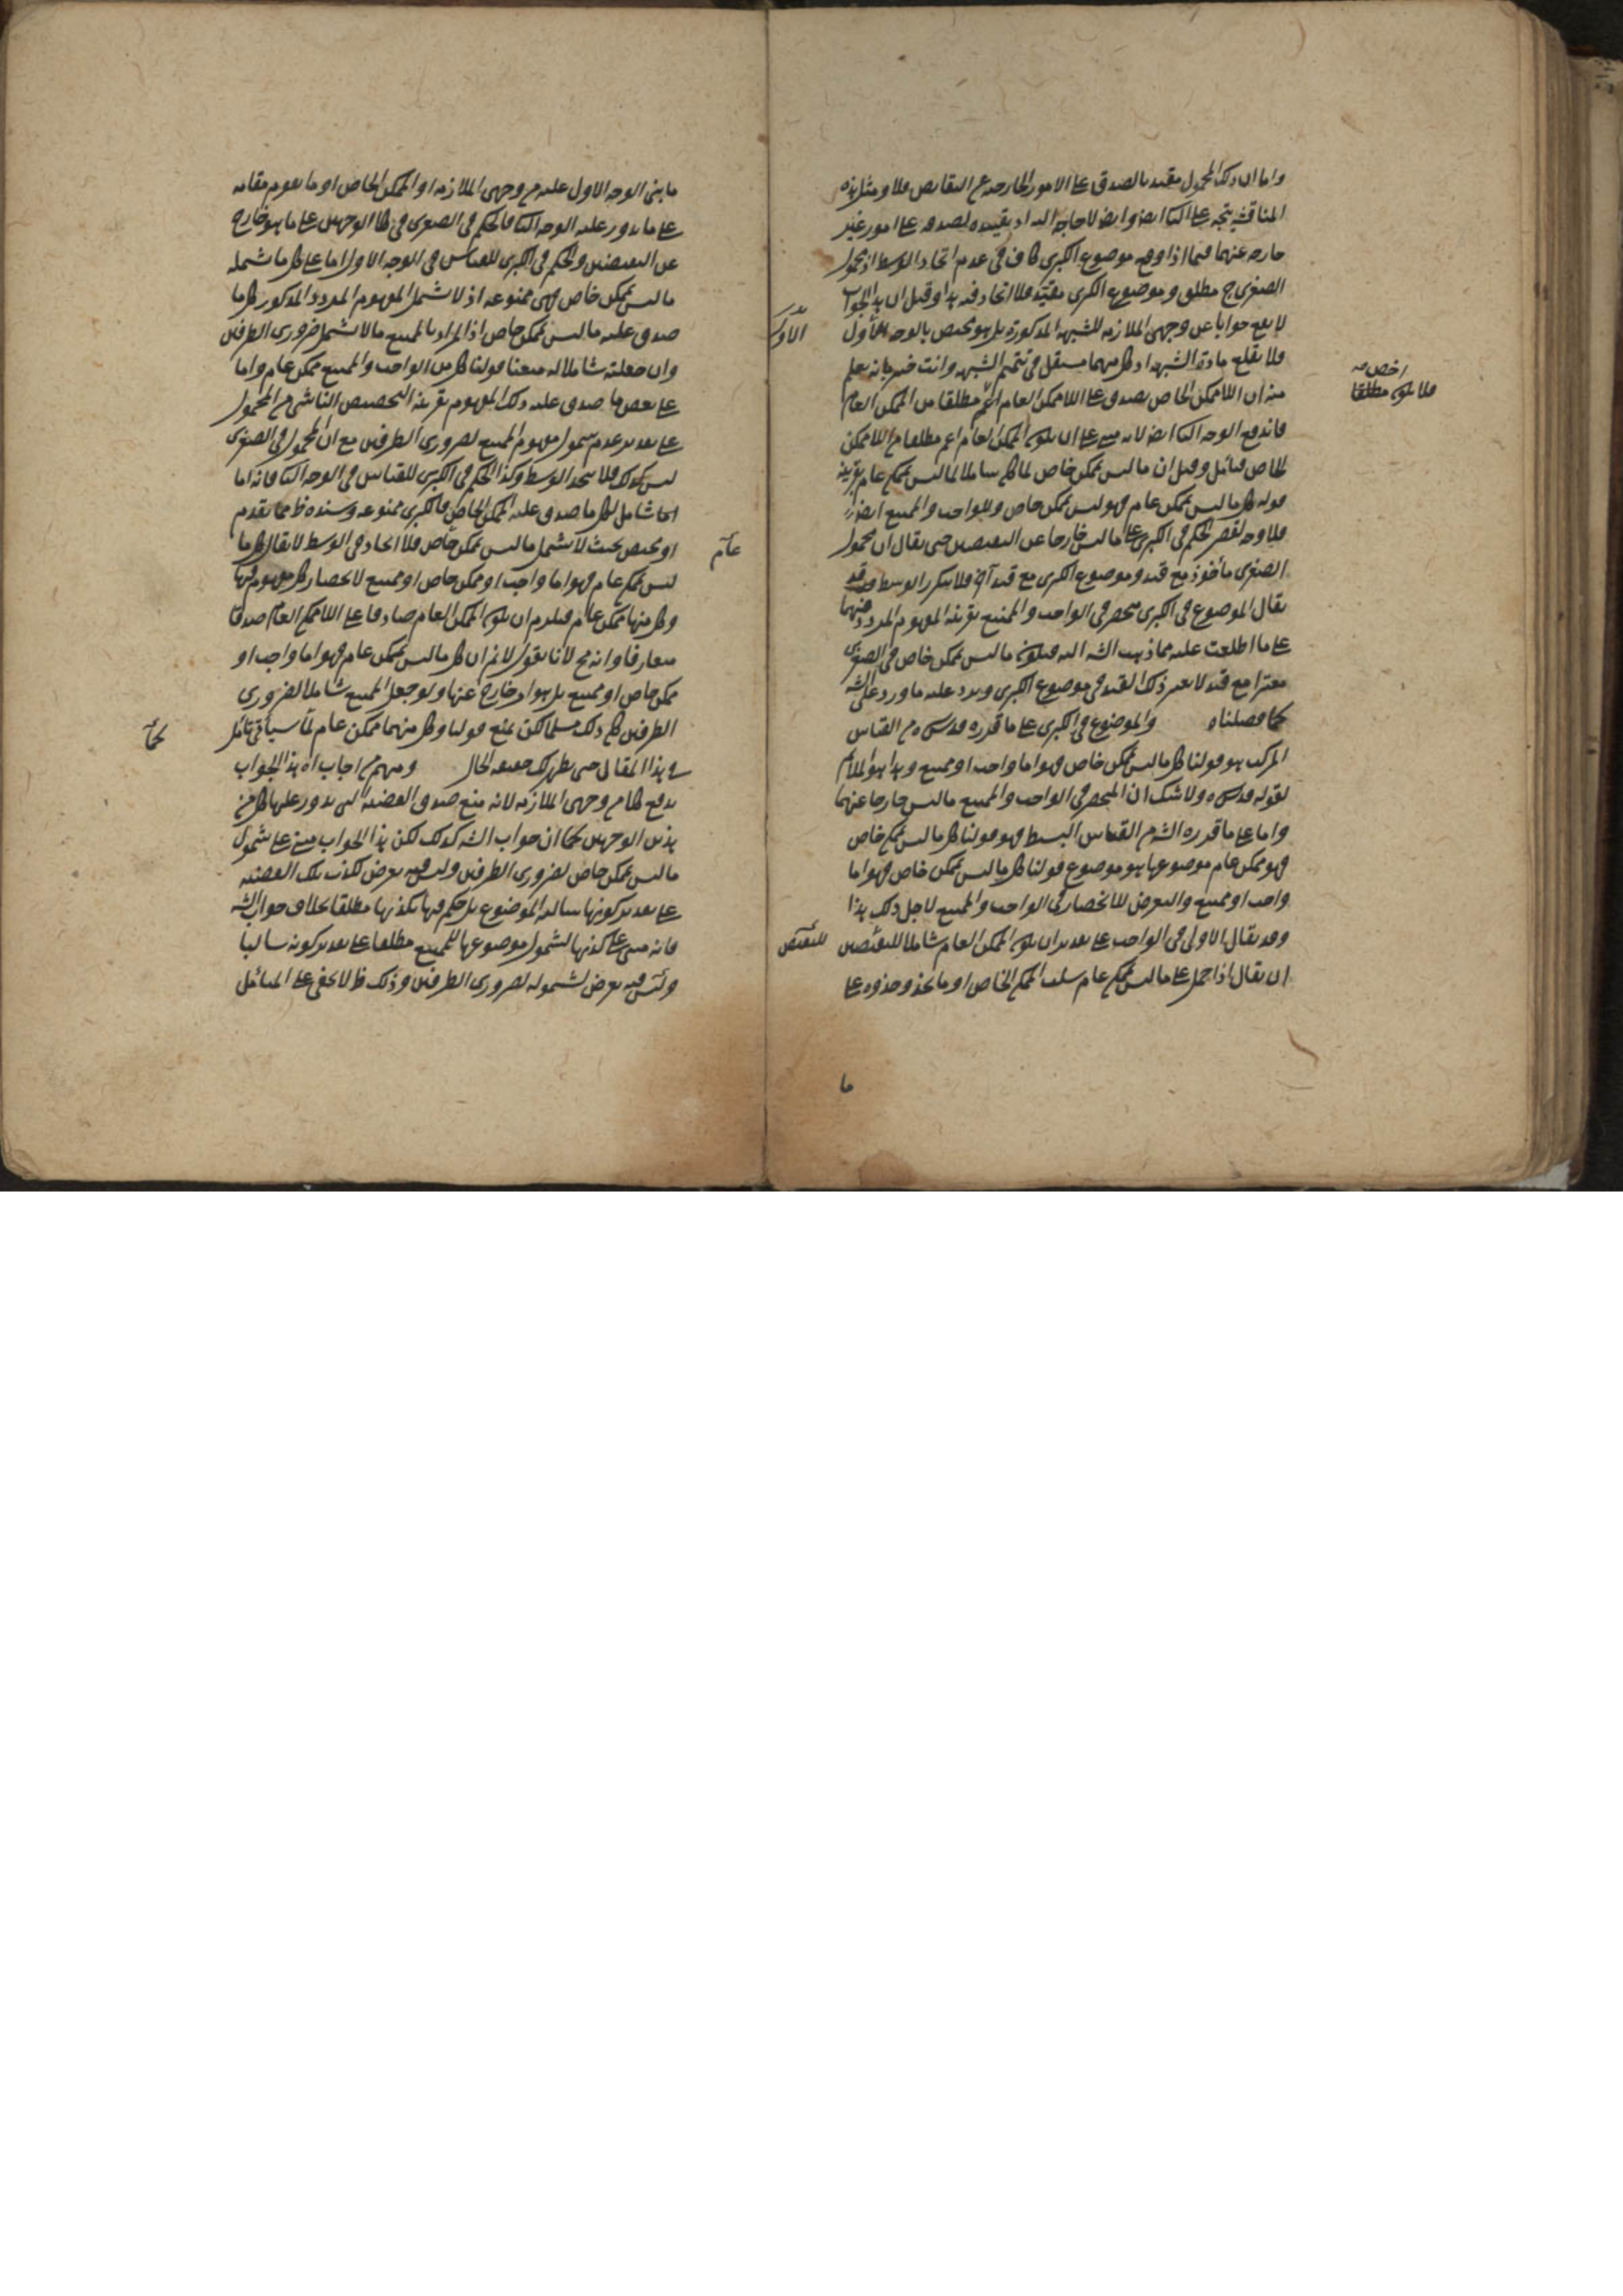 واما ان ذلك المحمول مقيد بالصدق على الامور الخارجة عن النقايض فلا ومثل هذه
المناقشة يتجه على الثانى ايضا وايضا لا حاجة الى تقييده بصدقه على امور غير
خارجة عنهما فيما اذا وقع موضوع الكبرى كاف فى عدم اتحاد الوسط اذ محمول
الصغرى ح مطلق وموضوع الكبرى مقيد فلا اتحاد فيه هذا وقيل ان هذا الجواب
لا يقع جوابا عن وجهى الملازمة للشبهة المذكورة بل هو مختص بالوجه الاول
الاول
فلا يقلع مادة الشبهة اذ كل منهما مستقل فى تتميم الشبهة وانت خبير بانه يعلم
اخص منه
فلا يكون مطلقا
منه ان اللاممكن الخاص يصدق على اللاممكن العام اعم مطلقا من الممكن العام
فاندفع الوجه الثانى ايضا لانه مبنى على ان يكون الممكن العام اعم مطلقا من اللاممكن
الخاص فتأمل وقيل ان ما ليس بممكن خاص لما كان شاملا لما ليس بممكن عام بقرينة
قوله كل ما ليس بممكن عام فهو ليس بممكن خاص وللواجب والممتنع ايضا
فلا وجه لقصر الحكم فى الكبرى على ما ليس خارجا عن النقيضين حتى يقال ان محمول
الصغرى مأخوذ مع قيد وموضوع الكبرى مع قيد آخر فلا يتكرر الوسط وقد
يقال الموضوع فى الكبرى منحصر فى الواجب والممتنع بقرينة المفهوم المردد منهما
على ما اطلعت عليه مما ذهب الشه اليه فيكون ما ليس بممكن خاص فى الصغرى
معتبرا مع قيد لا يعتبر ذلك القيد فى موضوع الكبرى ويرد عليه ما ورد على الشه
كما فصلناه والموضوع فى الكبرى على ما قرره قدس سره من القياس
المركب هو قولنا كل ما ليس بممكن خاص فهو اما واجب او ممتنع وهذا هو الملايم
لقوله قدس سره ولا شك ان المنحصر فى الواجب والممتنع ما ليس خارجا عنهما
واما على ما قرره الشه من القياس البسيط فهو قولنا كل ما ليس بممكن خاص
فهو ممكن عام موضوعها هو موضوع قولنا كل ما ليس بممكن خاص فهو اما
واجب او ممتنع والتعرض للانحصار فى الواجب والممتنع لاجل ذلك هذا
وقد يقال الاولى فى الواجب على تقدير ان يكون الممكن العام شاملا للنقيضين
للنقيض
ان يقال اذا حمل على ما ليس بممكن عام سلب الممكن الخاص او ما يحذو حذوه على
ما
ما بنى الوجه الاول عليه من وجهى الملازمة او الممكن الخاص او ما يقوم مقامه
على ما يدور عليه الوجه الثانى فالحكم فى الصغرى فى كلا الوجهين على ما هو خارج
عن النقيضين والحكم فى الكبرى للقياس فى الوجه الاول اما على كل ما شمله
ما ليس بممكن خاص فهى ممنوعة اذ لا شمل المفهوم المردد المذكور كل ما
صدق عليه ما ليس بممكن خاص اذ المراد بالممتنع ما لا يشمل ضرورى الطرفين
وان جعلته شاملا له منعنا قولنا كل من الواجب والممتنع ممكن عام واما
على بعض ما صدق عليه ذلك المفهوم بقرينة التخصيص الناشى من المحمول
على تقدير عدم شمول مفهوم الممتنع لضرورى الطرفين مع ان المحمول فى الصغرى
ليس كذلك فلا يتحد الوسط وكذا الحكم فى الكبرى للقياس فى الوجه الثانى فانه اما
شامل لكل ما صدق عليه الممكن الخاص فالكبرى ممنوعة وسنده ظ مما تقدم
او مختص بحيث لا يشمل ما ليس بممكن خاص فلا اتحاد فى الوسط لا يقال كل ما
عام
ليس بممكن عام فهو اما واجب او ممكن خاص او ممتنع لانحصار كل مفهوم فيها
وكل منها ممكن عام فيلزم ان يكون الممكن العام صادقا على اللاممكن العام صدقا
متعارفا وانه مح لانا نقول لا نم ان كل ما ليس بممكن عام فهو اما واجب او
ممكن خاص او ممتنع بل هو امر خارج عنها ولو جعل الممتنع شاملا لضرورى
الطرفين كان ذلك مسلما لكن يمنع قولنا وكل منهما ممكن عام لما سيأتى تأمل
كما
فى هذا المقال حتى يظهر لك حقيقة الحال ومنهم من اجاب اه هذا الجواب
يدفع كلا من وجهى الملازمة لانه منع صدق القضية التى يدور عليها كل من
هذين الوجهين كما ان جواب الشه كذلك لكن هذا الجواب مبنى على شمول
ما ليس بممكن خاص لضرورى الطرفين وليس فيه تعرض لكذب تلك القضية
على تقدير كونها سالبة الموضوع بل حكم فيها بكذبها مطلقا بخلاف جواب الشه
فانه مبنى على كذبها لشمول موضوعها للممتنع مطلقا على تقدير كونه سالبا
وليس فيه تعرض لشموله لضرورى الطرفين وذلك ظ لا يخفى على المتأمل